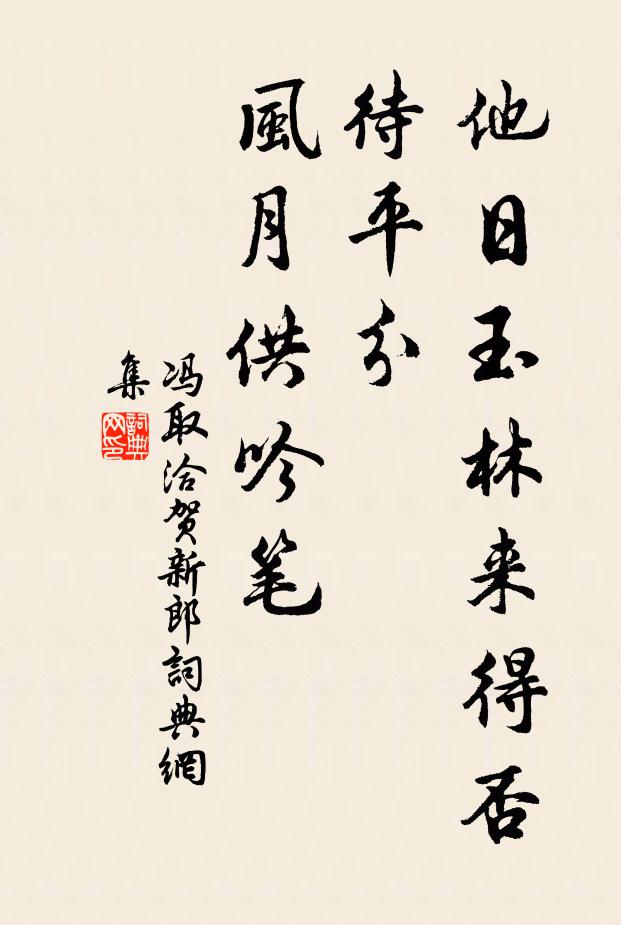 他日玉林来得否
待平分
風月供吟笔
冯取洽贺新郎詞典網
集
詞典
网印